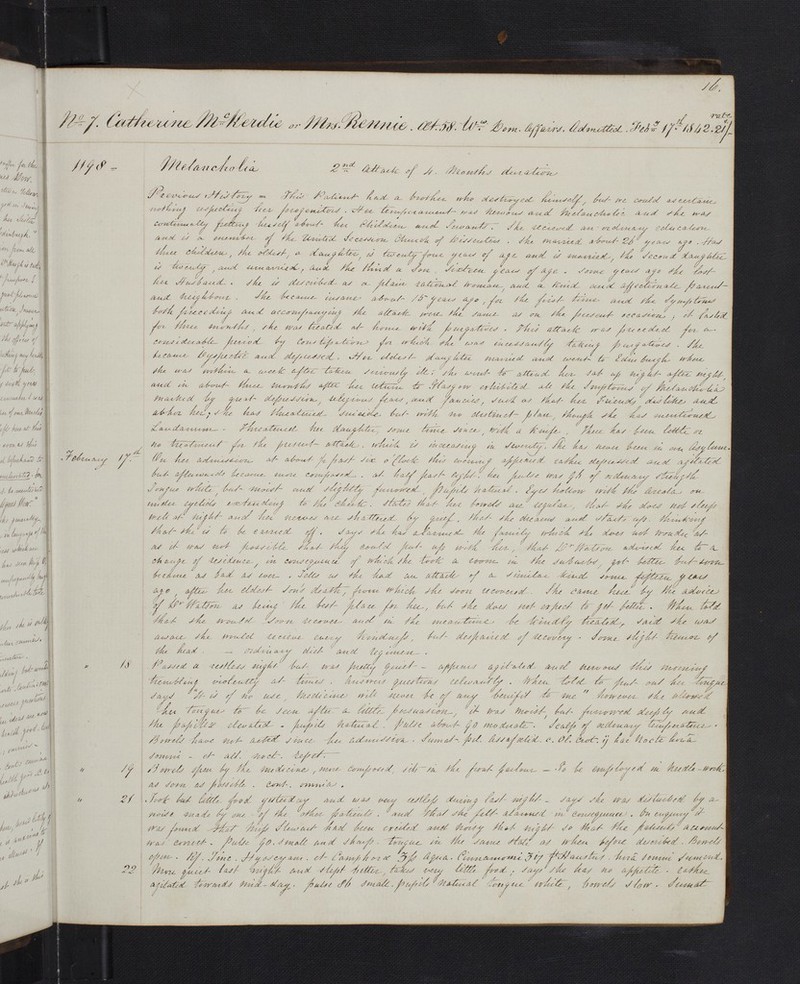 16.
No. 7. Catherine McKerdie or Mrs. Rennie. Æt. 58. Wid. Dom. Affairs. Admitted. Feb. 17th 1842. rate 21/
1198 - Melancholia 2nd Attack of 4. Months duration
Previous History - This Patient had a brother who destroyed himself, but we could ascertain
nothing respecting her progenitors. Her temperament was nervous and melancholic and she was
continually fretting herself about her Children and Servants. She received an ordinary education
and is a member of the United Secession Church of Dissenters. She married about 26 years ago. Has
three children, the oldest, a daughter, is twenty four years of age and is married, the second daughter
is twenty, and unmarried, and the third a Son, Sixteen years of age. Some years ago she lost
her Husband. She is described as a plain rational woman, and a kind and affectionate parent
and neighbour. She became insane about 15 years ago, for the first time and the Symptoms
both preceding and accompanying the attack were the same as on the present occasion; it lasted
for three months, she was treated at home with purgatives. This attack was preceded for a
considerable period by Constipation for which she was incessantly taking purgatives. She
became dyspeptic and depressed. Her oldest daughter married and went to Edinburgh where
she was within a week after taken seriously ill; she went to attend her sat up night after night,
and in about three months after her return to Glasgow exhibited all the Symptoms of Melancholia
marked by great depression, religious fears, and fancies, such as that her friends dislike and
abhor her; she has threatened suicide but with no distinct plan, though she has mentioned
Laudanum - Threatened her daughter some time since, with a knife. There has been little or
no treatment for the present attack, which is increasing in severity. She has never been in an Asylum.
February 17th On her admission at about ½ past six o'Clock this evening appeared rather depressed and agitated
but afterwards became more composed. at half past eight her pulse was 96 of ordinary strength
Tongue white, but moist and slightly furrowed. Pupils natural. Eyes hollow with the areola on
under eyelids extending to the cheek. States that her bowels are regular, that she does not sleep
well at night and her nerves are shattered by grief. that she dreams and starts up thinking
that she is to be carried off. Says she has alarmed the family which she does not wonder at
as it was not possible that they could put up with her, that Dr. Watson advised her to a
change of residence, in consequence of which she took a room in the suburbs, got better but soon
became as bad as ever. Tells us she had an attack of a similar kind some fifteen years
ago, after her eldest son's death, from which she soon recovered. She came here by the advice
of Dr Watson as being the best place for her, but she does not expect to get better. When told
that she would soon recover and in the meantime be kindly treated, said she was
aware she would receive every kindness, but despaired of recovery. Some slight tremor of
the head. - ordinary diet and regimen.
" 18 Passed a restless night but was pretty quiet - appears agitated and nervous this morning
trembling violently at times. Answers questions relevantly. When told to put out her tongue
says "It is of no use, medicine will never be of any benefit to me" however she allowed
her tongue to be seen after a little persuasion, it was moist, but furrowed deeply and
the papillæ elevated. pupils natural. Pulse about 90 moderate. Scalp of ordinary temperature.
Bowels have not acted since her admission. Sumat. pil. Assafœtid. c. Ol. Crot. ij hac Nocte horâ
somni - et alt. noct. repet.
" 19 Bowels open by the medicine, more composed, sits in the front parlour - To be employed in needle-work
as soon as possible. Cont. omnia.
" 21 Took but little food yesterday and was very restless during last night - says she was disturbed by a
noise made by one of the other patients. and that she felt alarmed in consequence. On enquiry it
was found that Miss Stewart had been excited and noisy that night so that the patient's account
was correct. Pulse 90. small and sharp. tongue in the same state as when before described. Bowels
open. Rx. Tinc. Hyoscyam. et Camphoræ ʒfs Aqua. Cinnamomi ft Haustus. horâ somni sumend.
22 More quiet last night and slept better, takes very little food; says she has no appetite. rather
agitated towards mid-day. pulse 86 small. pupils natural tongue white, bowels slow. Sumat